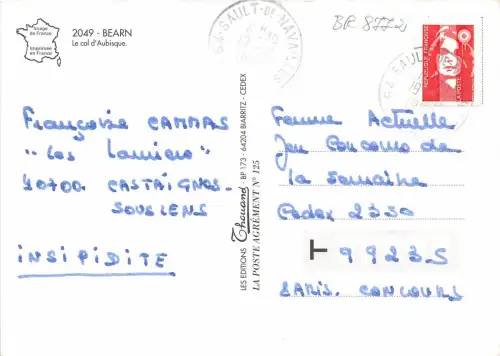 Image
de France
Imprimée
en France
2049 - BEARN
Le col d'Aubisque.
BR 8772
64 SAULT-DE-NAVAILLES
RÉPUBLIQUE FRANÇAISE
LA POSTE
64 SAULT-DE
Françoise CAMMAS
"Les Lauriers"
40700. CASTAIGNOS-
SOUSLENS
INSIPIDITE
LES EDITIONS Thouand BP 173 - 64204 BIARRITZ - CEDEX
LA POSTE AGRÉMENT N° 125
Femme Actuelle
Jeu Concours de
la Semaine
Cedex 2350
T 99235
PARIS. CONCOURS